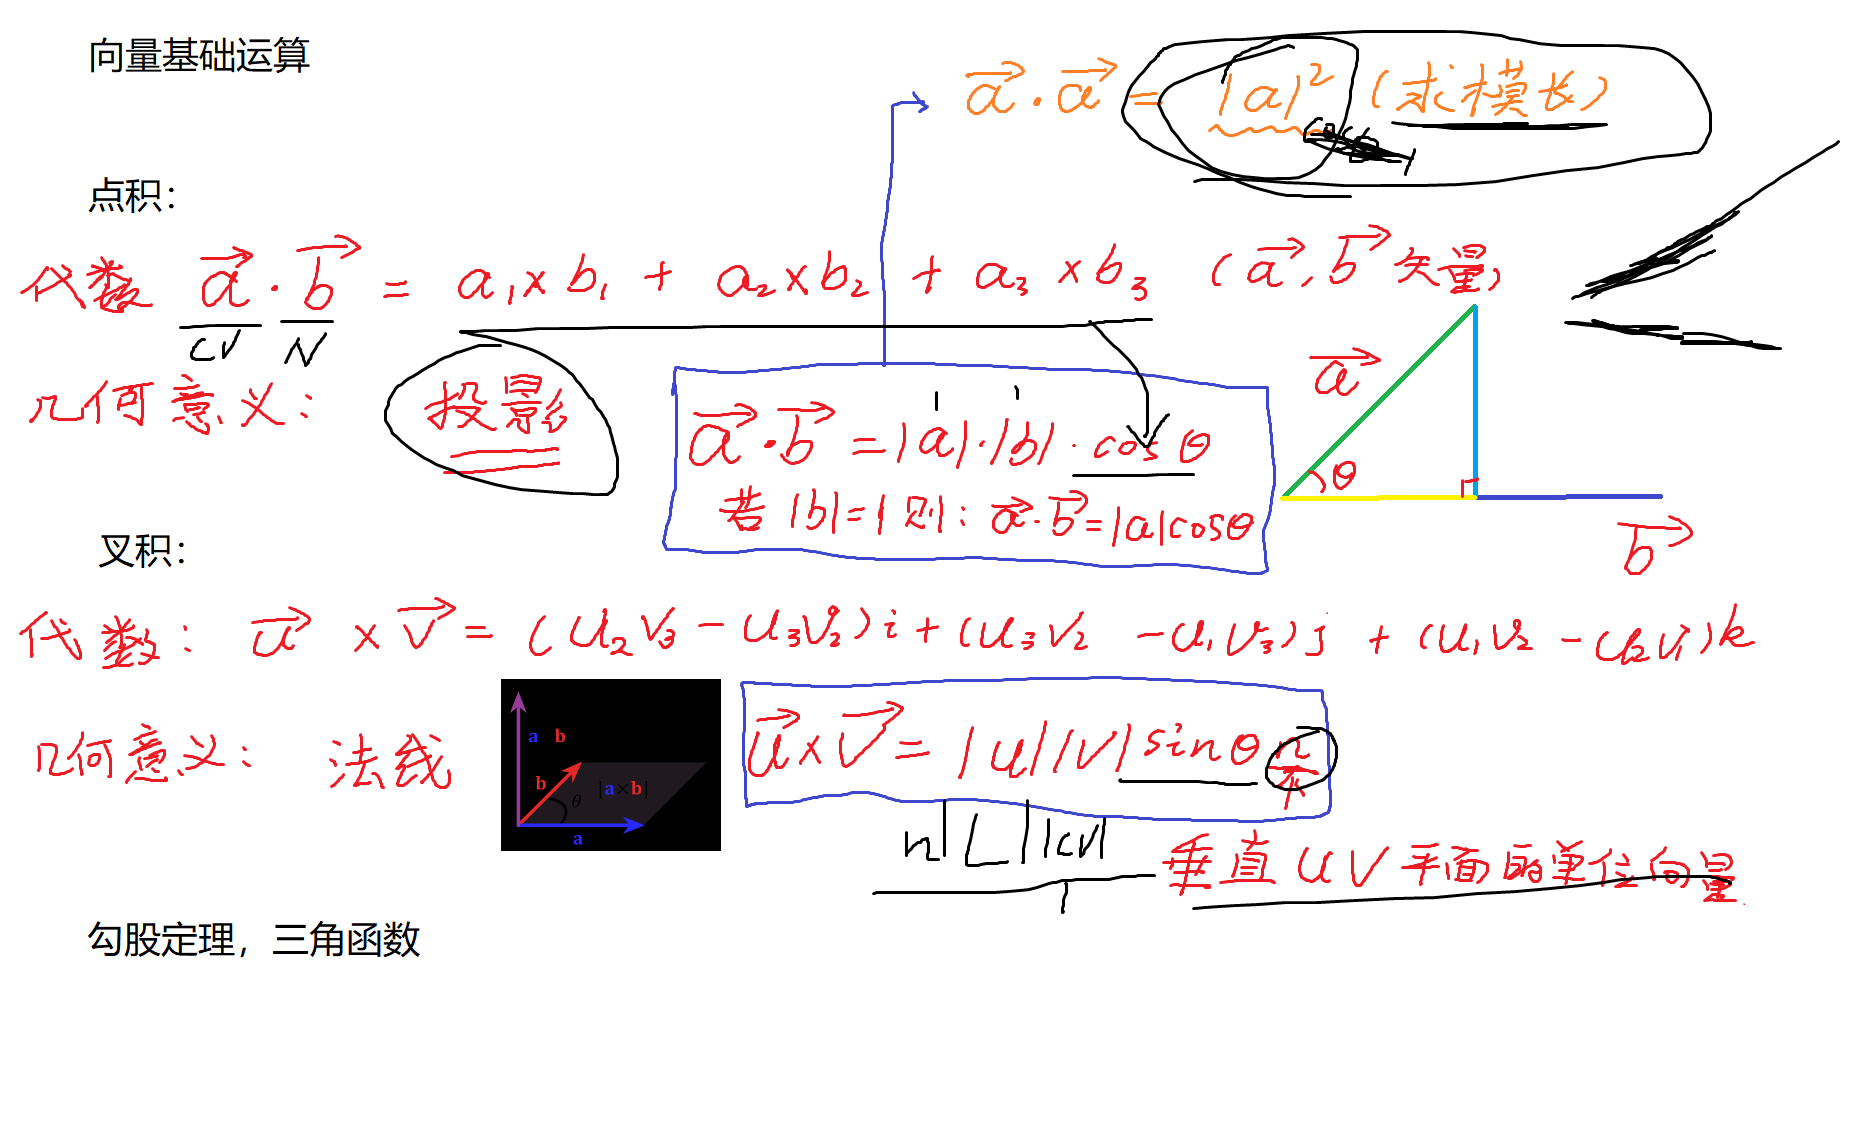 向量基础运算
a · a = |a|² (求模长)
点积：
代数 a · b = a₁×b₁ + a₂×b₂ + a₃×b₃ (a, b 矢量)
CV N
几何意义： 投影
a · b = |a|·|b|·cosθ
若 |b|=1 则: a·b=|a|cosθ
a
θ
b
叉积：
代数: u × v = (u₂v₃ - u₃v₂)i + (u₃v₂ - u₁v₃)j + (u₁v₂ - u₂v₁)k
几何意义: 法线
a b
b θ |a×b|
a
u×v = |u||v|sinθ n
n| L | |cv|
1
垂直 UV 平面的单位向量
勾股定理，三角函数